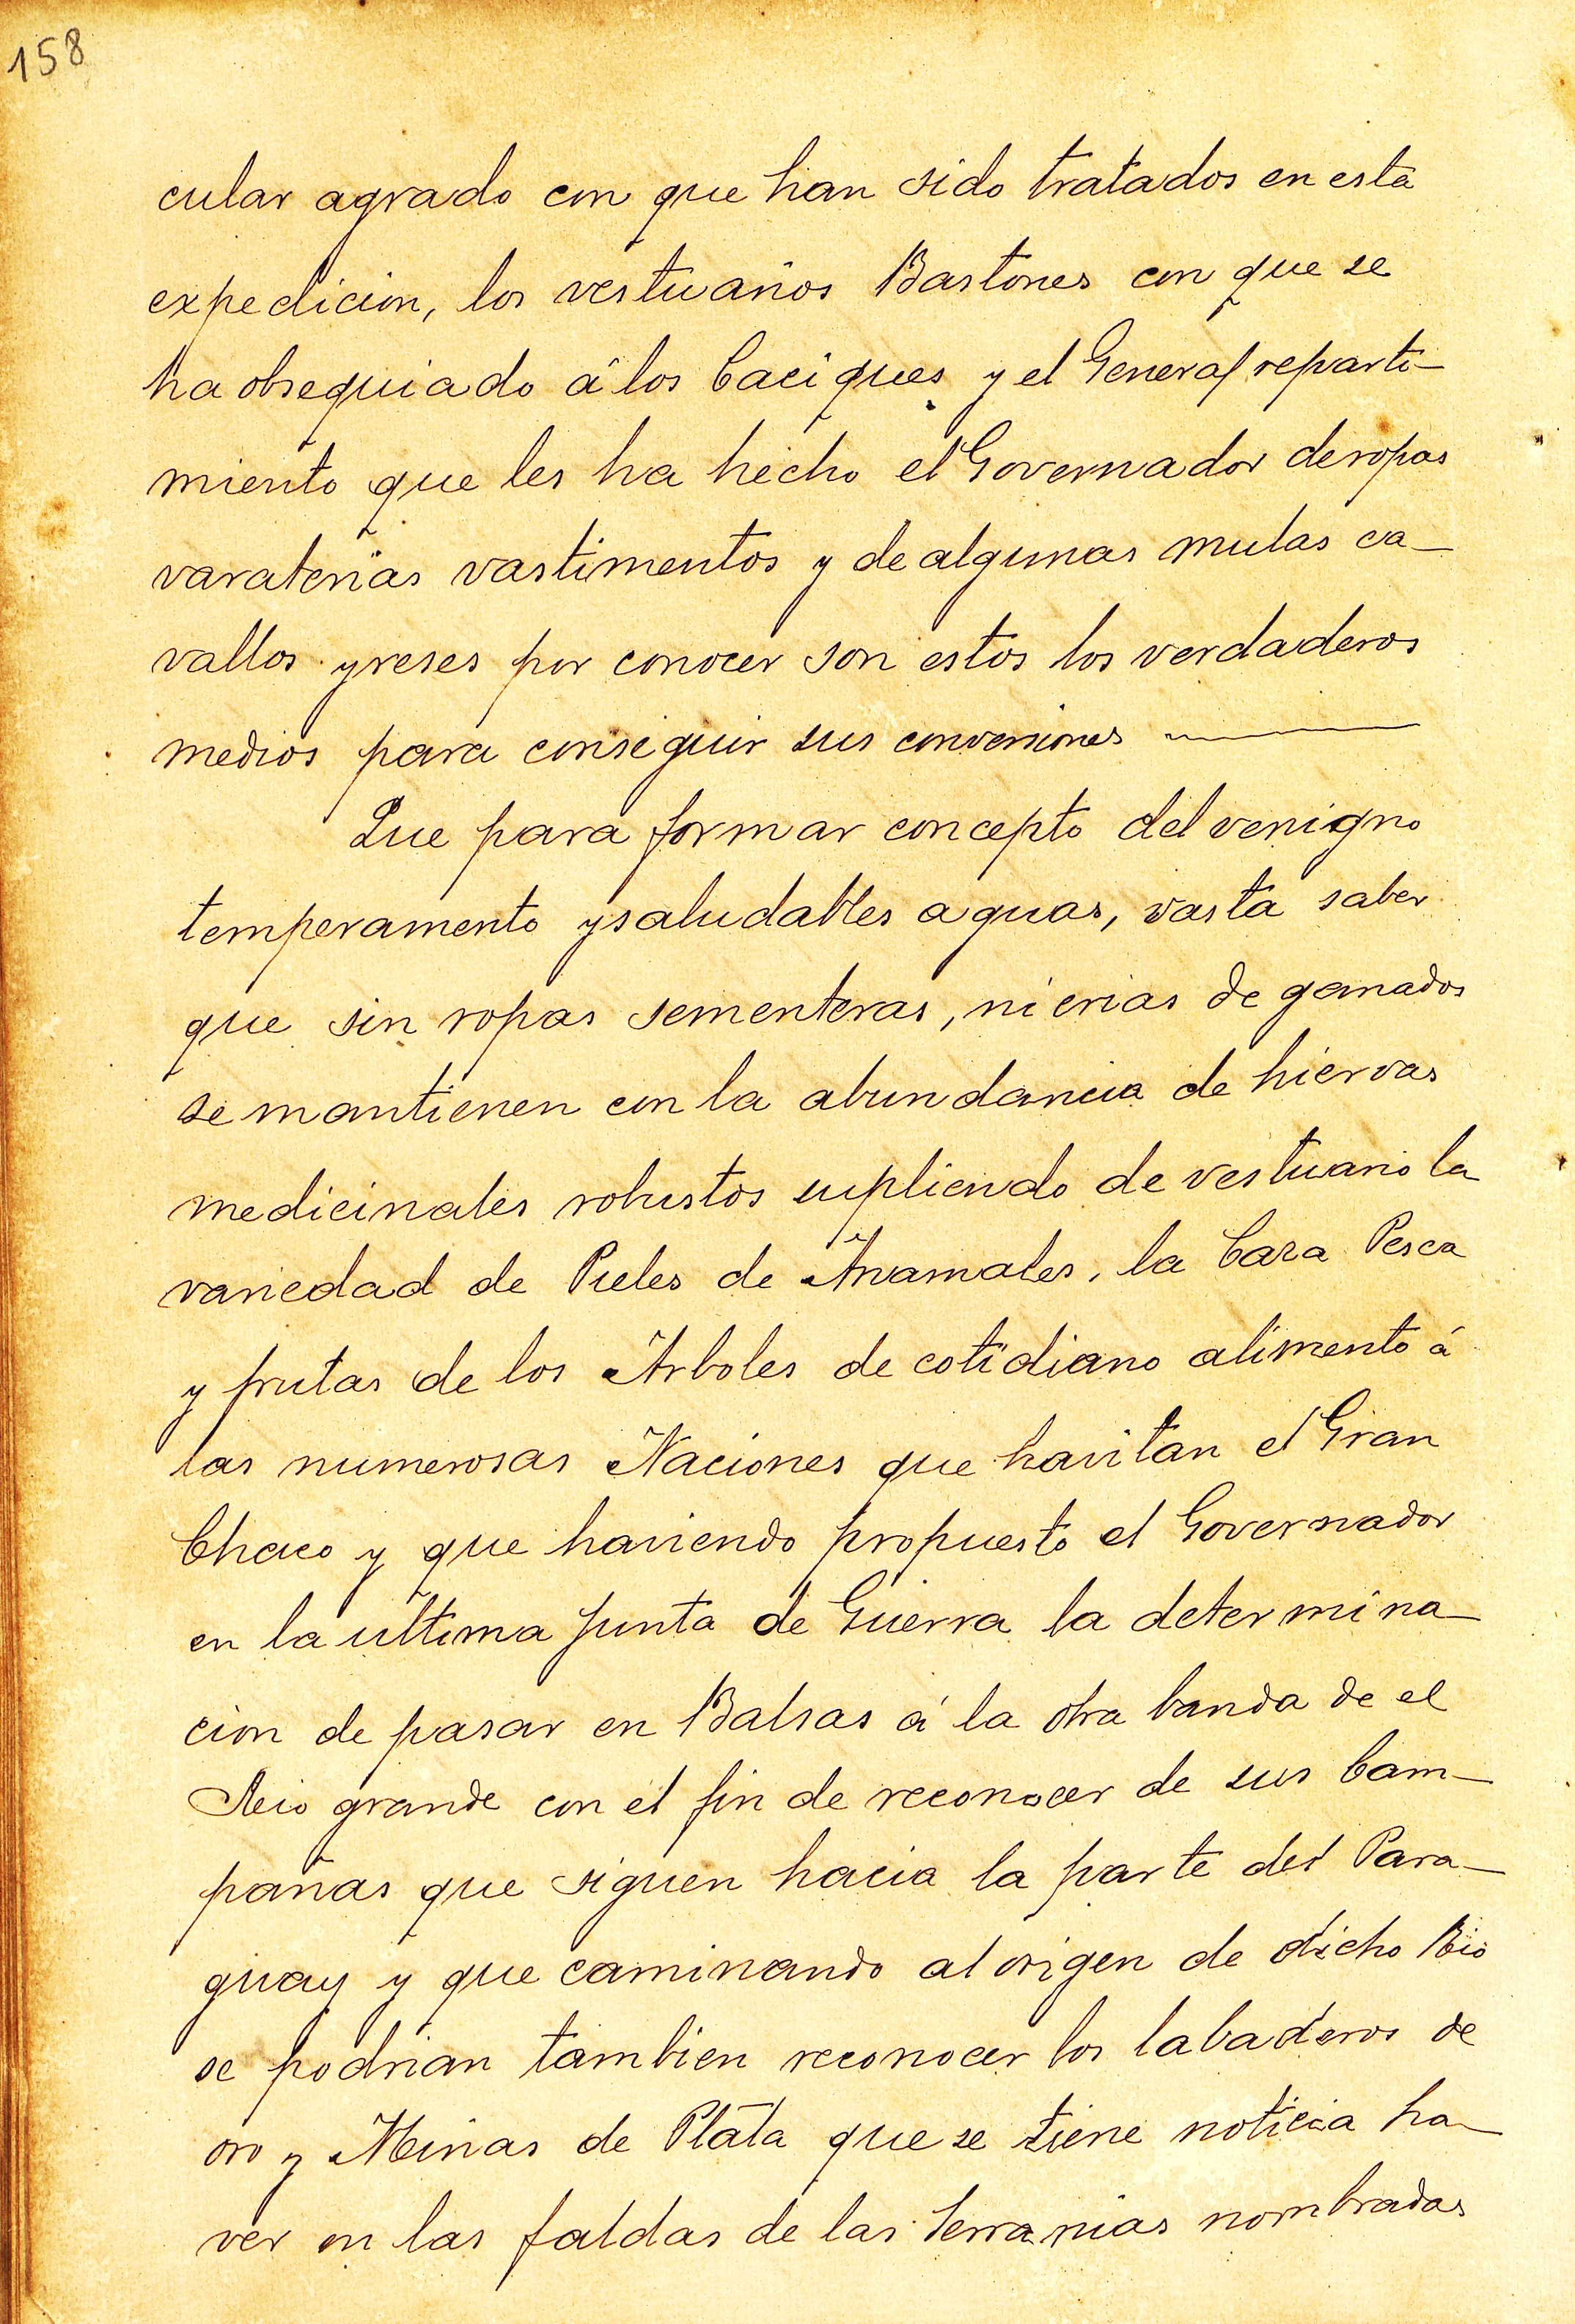 158
cular agrado con que han sido tratados en esta
expedicion, los vestuarios Bastones con que se
ha obsequiado á los Caciques y el General reparti-
miento que les ha hecho el Governador de ropas
varaterias vastimentos y de algunas mulas ca-
vallos y reses por conocer son estos los verdaderos
medios para conseguir sus conversiones
Que para formar concepto del venigno
temperamento y saludables aguas, vasta saber
que sin ropas sementeras, ni crias de ganados
se mantienen con la abundancia de hiervas
medicinales robustos supliendo de vestuario la
variedad de Pieles de Anamales, la Caza Pesca
y frutas de los Arboles de cotidiano alimento á
las numerosas Naciones que havitan el Gran
Chaco y que haviendo propuesto el Governador
en la ultima Junta de Guerra la determina-
cion de pasar en Balsas á la otra banda de el
Rio grande con el fin de reconocer de sus Cam-
pañas que siguen hacia la parte del Para-
guay y que caminando al origen de dicho Rio
se podrian tambien reconocer los labaderos de
oro y Minas de Plata que se tiene noticia ha-
ver en las faldas de las Serranias nombradas